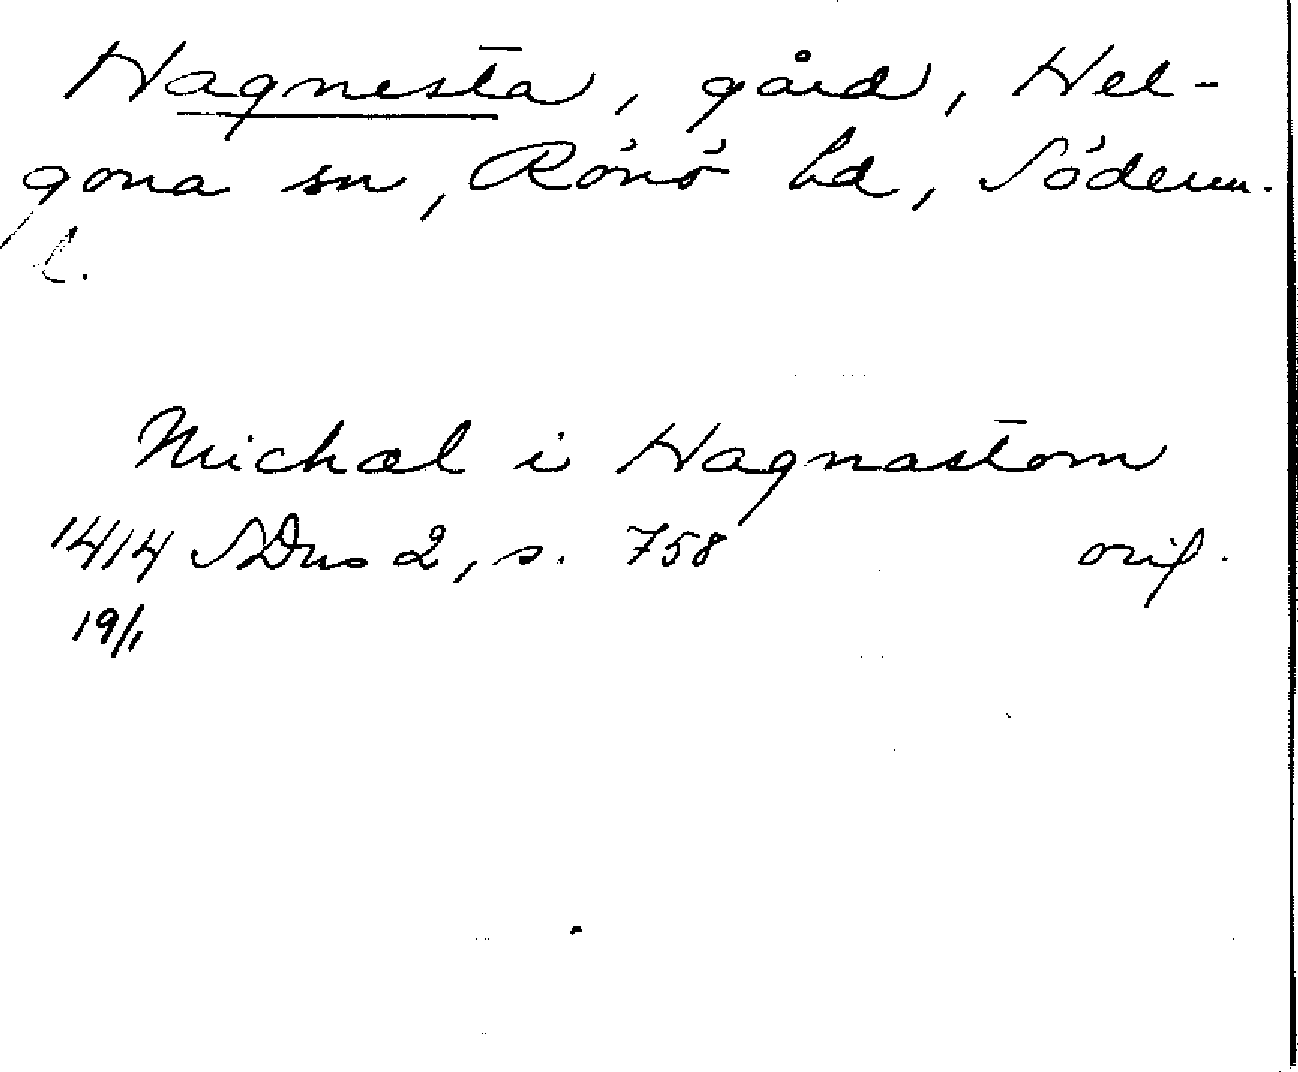 Hagnesta, gård, Hel-
gona sn, Rönö hd, Söderm.
l.
Michael i Hagnastom
1414 SDns 2, s. 758 orig.
19/1